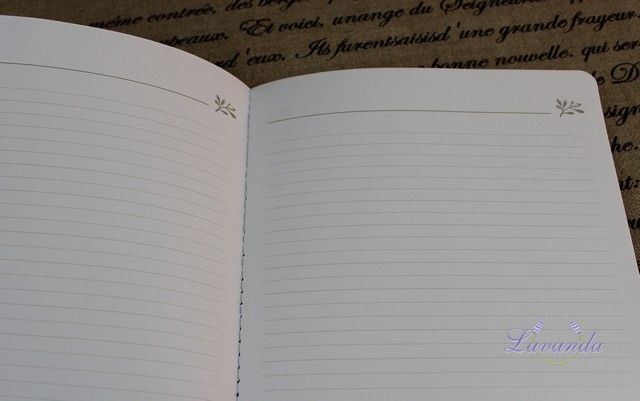 même contrée, des berg
beaux. Et voici, unange du Seigneur
d'eux. Ils furentsaisisd'une grande frayeur
bonne nouvelle. qui ser
de D
sign
he.
nt:
Lavanda